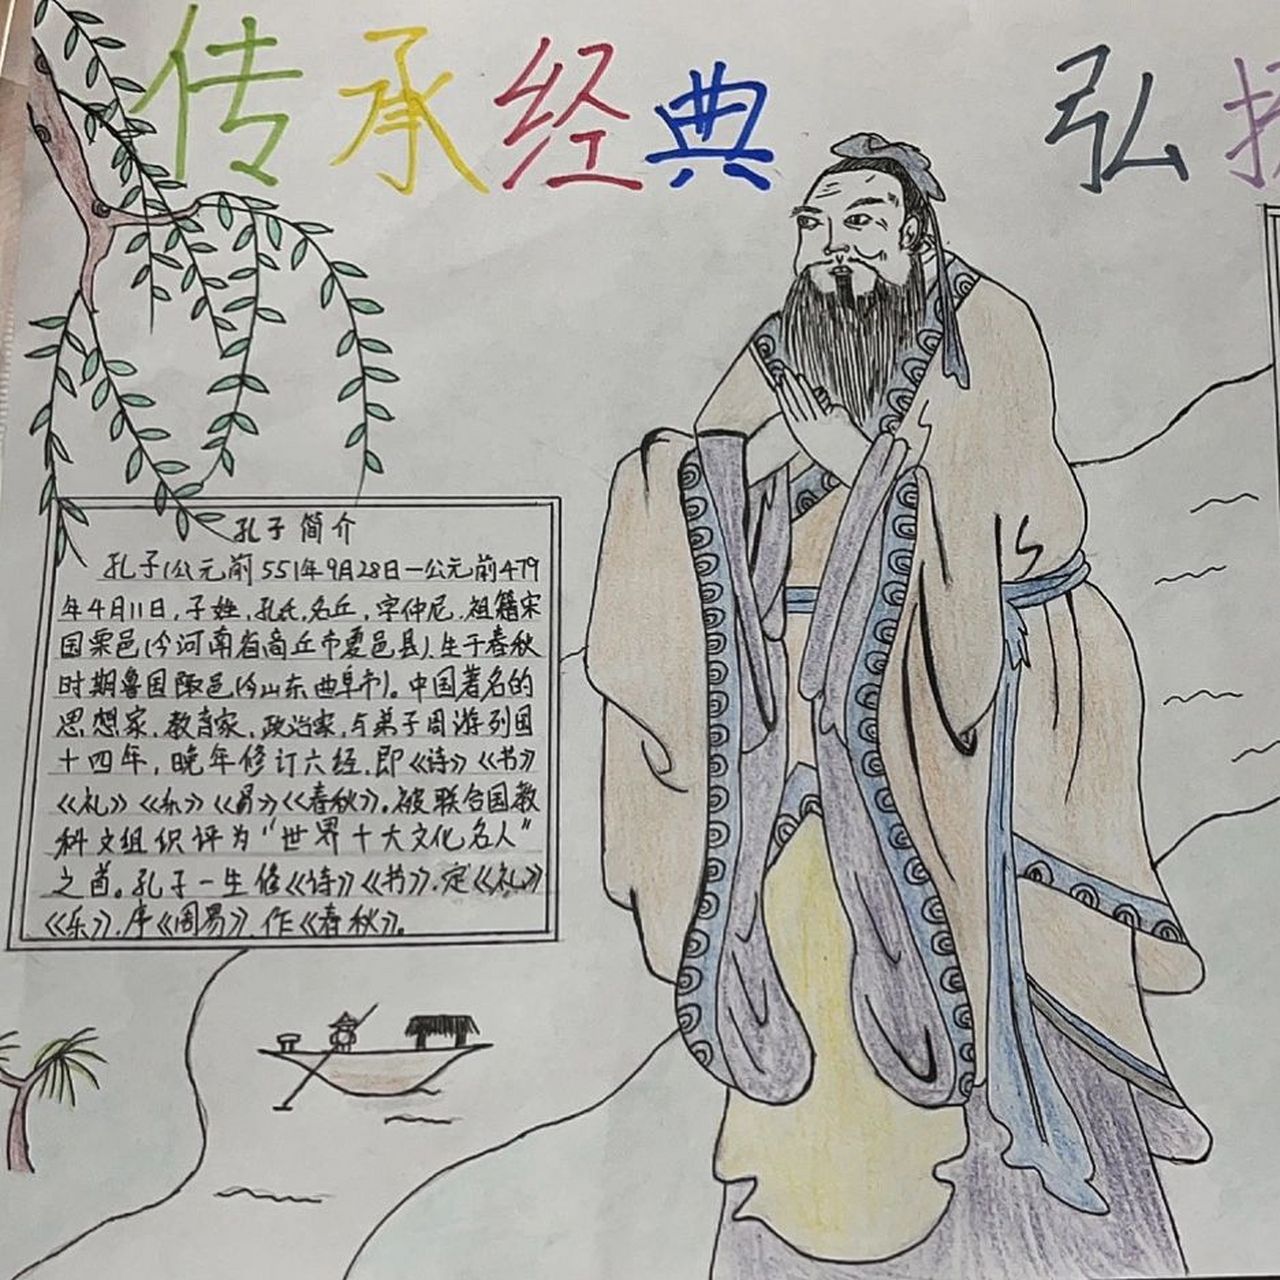 传承经典 弘扬
孔子简介
孔子(公元前551年9月28日—公元前479
年4月11日,子姓,孔氏,名丘,字仲尼,祖籍宋
国栗邑(今河南省商丘市夏邑县),生于春秋
时期鲁国陬邑(今山东曲阜市)。中国著名的
思想家,教育家,政治家,与弟子周游列国
十四年,晚年修订六经,即《诗》《书》
《礼》《乐》《易》《春秋》。被联合国教
科文组织评为“世界十大文化名人”
之首。孔子一生修《诗》《书》,定《礼》
《乐》,序《周易》,作《春秋》。